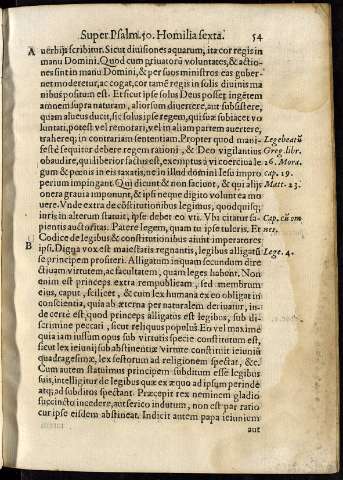 Super Psalm. 50. Homilia sexta. 54
A uerbijs scribitur. Sicut diuisiones aquarum, ita cor regis in
manu Domini. Quod cum priuatorū voluntates, & actio-
nes sint in manu Domini, & per suos ministros eas guber-
net moderetur, ac cogat, cor tamē regis in solis diuinis ma
nibus positum est. Et sicut ipse solus Deus posset ingētem
amnem supra naturam, aliorsum diuertere, aut subsistere,
quam alueus ducit, sic solus ipse regem, qui suæ subiacet vo
luntati, potest vel remotari, vel in aliam partem auertere,
trahereq; in contrariam sententiam. Propter quod mani-
feste sequitur debere regem rationi, & Deo vigilantius
obaudire, qui liberior factus est, exemptus à vi coerciua le
gum & pœnis in eis taxatis, ne in illud dómini Iesu impro
perium impingant. Qui dicunt & non faciunt, & qui alijs
onera grauia imponunt, & ipsi neque digito volunt ea mo
uere. Vnde extra de cōstitutionibus legimus, quodquisq;
iuris in alterum statuit, ipse debet eo vti. Vbi citatur sa-
pientis auctoritas. Patere legem, quam tu ipse tuleris. Et
Legebatū
Greg. liber.
26. Mora.
cap. 19.
Matt. 23.
Cap. cū om
nes.
B Codice de legibus & constitutionibus aiunt imperatores
ipsi. Digna vox est maiestatis regnantis, legibus alligatū
se principem profiteri. Alligatum inquam secundum dire
ctiuam virtutem, ac facultatem, quam leges habent. Non
enim est princeps extra rempublicam, sed membrum
eius, caput, scilicet, & cum lex humana ex eo obligat in
conscientia, quia ab æterna per naturalem deriuatur, in-
de certè est, quod princeps alligatus est legibus, sub di-
scrimine peccari, sicut reliquus populus. En vel maximè
quia iam iussum opus sub virtutis specie constitutum est,
sicut lex ieiunij sub abstinentiæ virtute constituit ieiuniū
quadragesimæ, lex festorum ad religionem spectat, &c.
Cum autem statuimus principem subditum esse legibus
suis, intelligitur de legibus quæ ex æquo ad ipsum perinde
atq; ad subditos spectant. Præcepit rex neminem gladio
succincto incedere, aut serico indutum, non est par ratio
cur ipse eisdem abstineat. Indicit autem papa ieiunium
Lege. 4.
aut